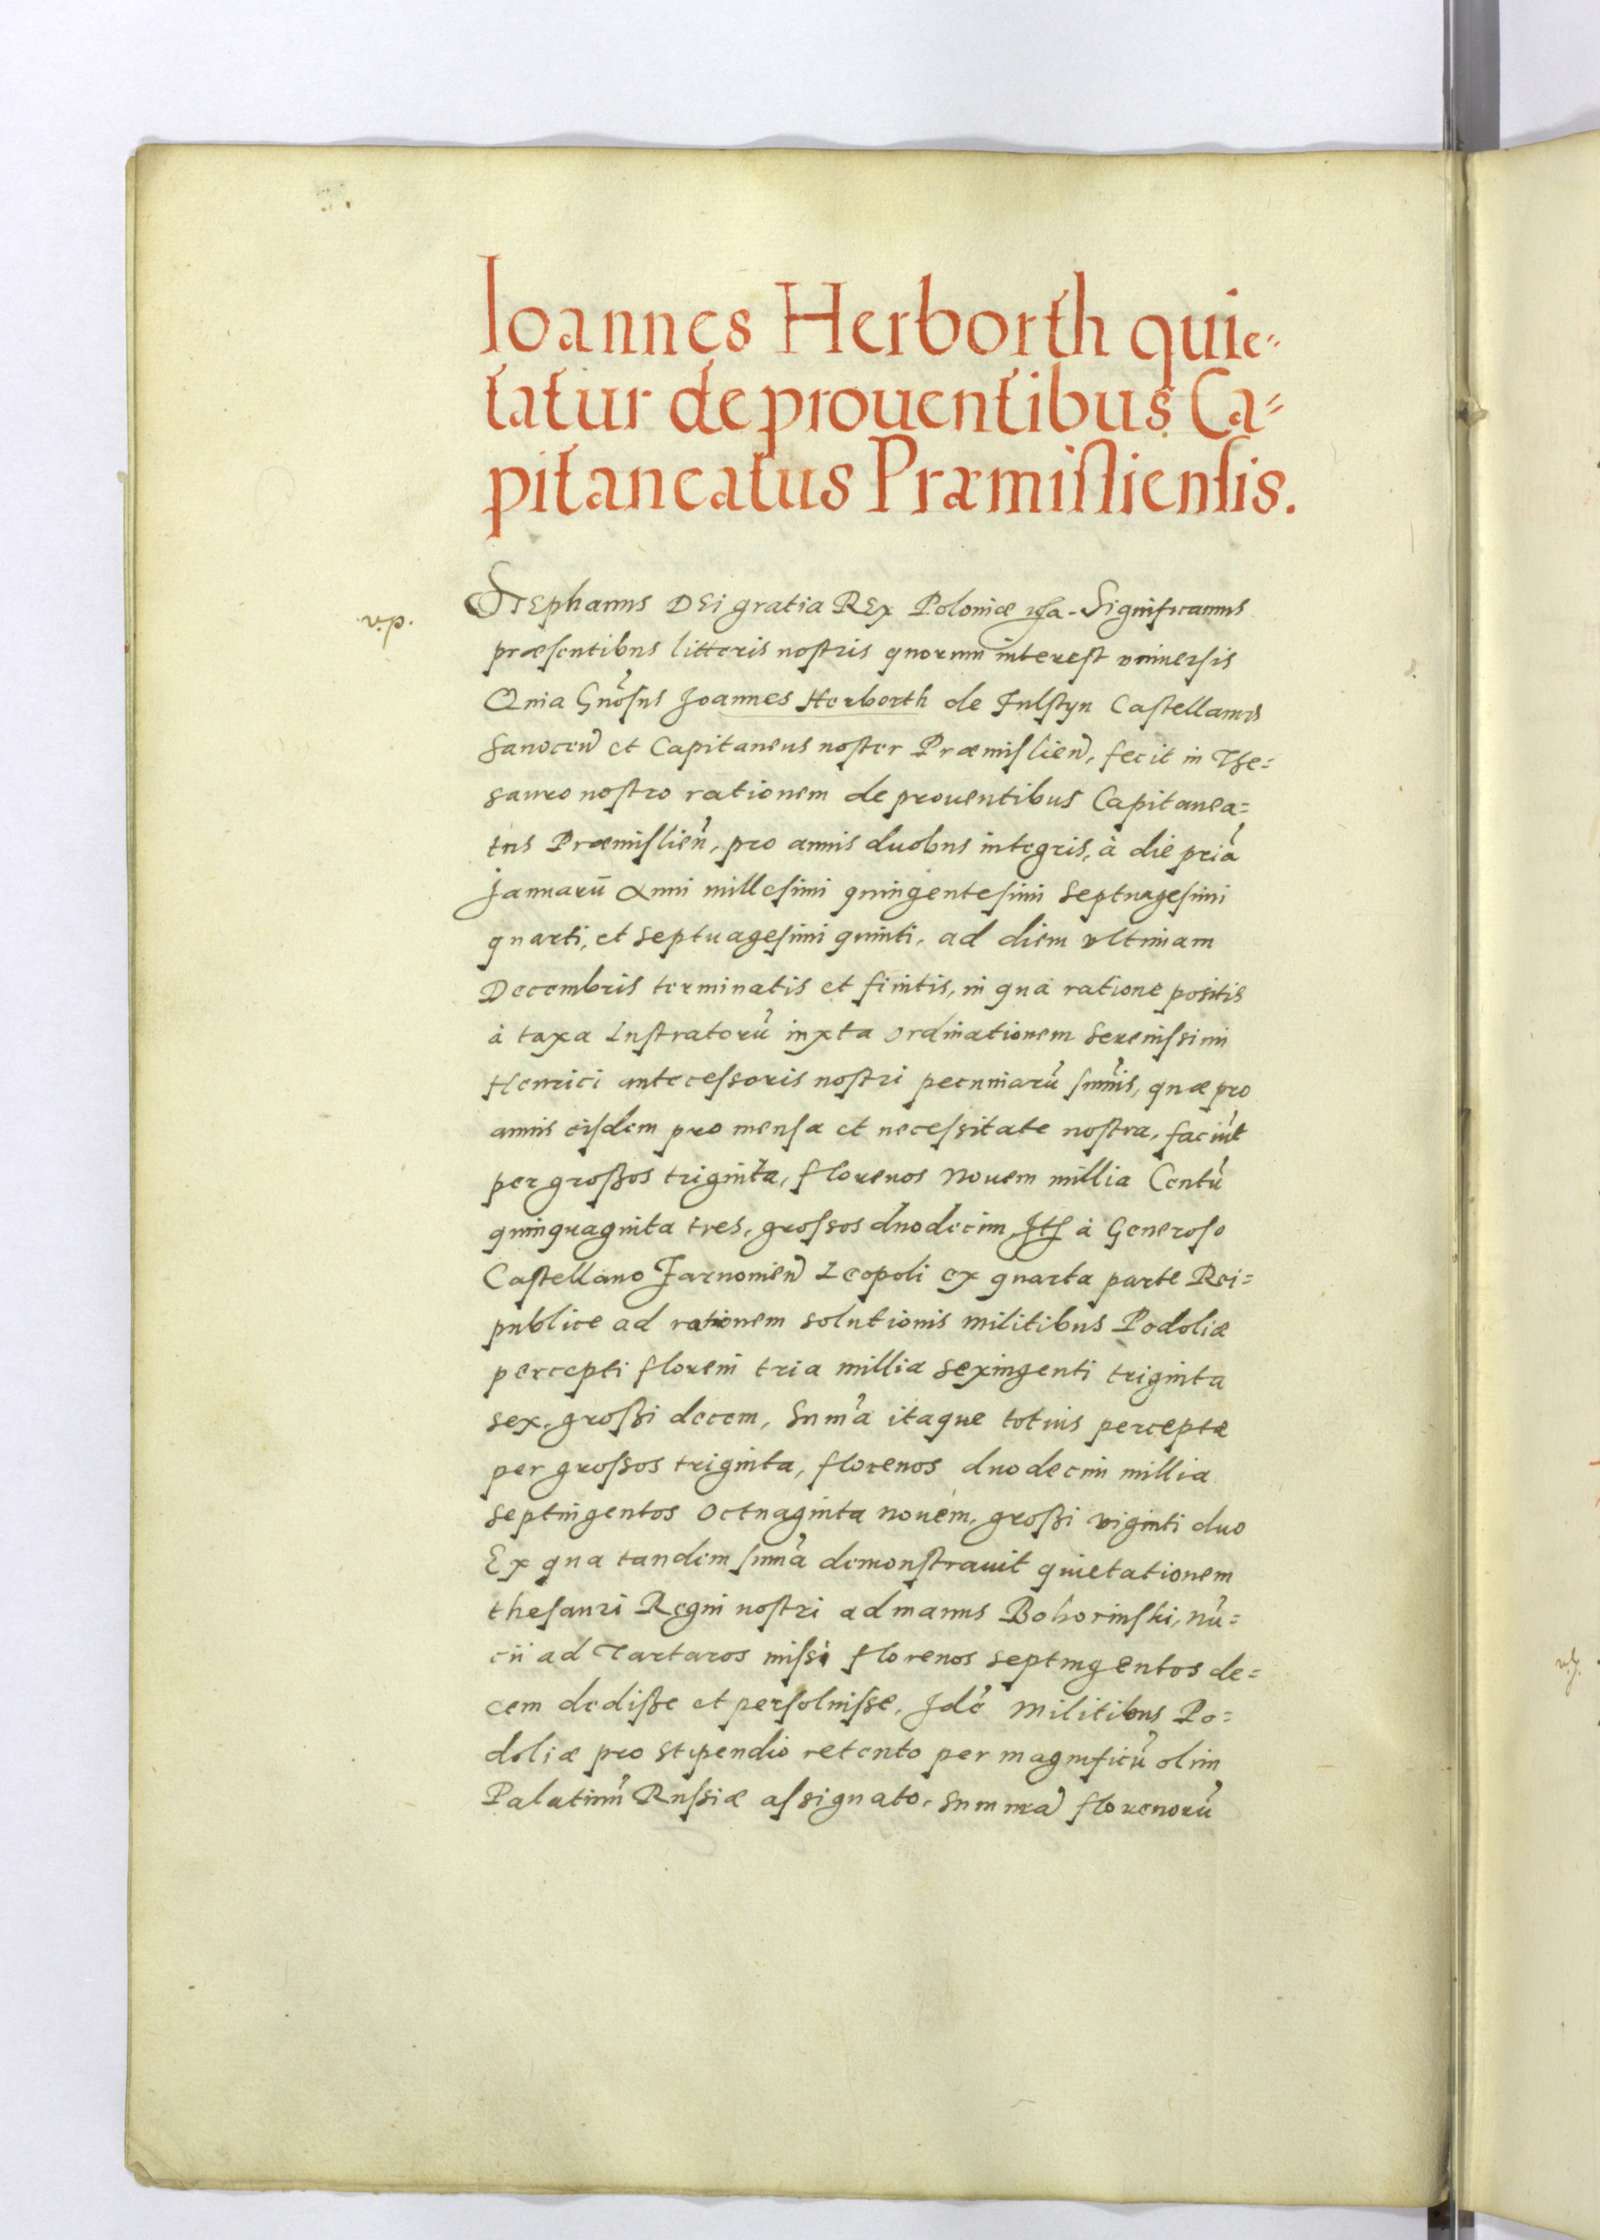 Ioannes Herborth quie=
tatur de prouentibus Ca=
pitaneatus Præmisliensis.
Stephanus Dei gratia Rex Poloniæ Significamus
præsentibus litteris nostris quorum interest vniuersis
Quia Gnõsus Joannes Herborth de Fulstyn Castellanus
Sanocen̄ et Capitaneus noster Præmislien̄, fecit in The=
sauro nostro rationem de prouentibus Capitanea=
tus Præmislien̄, pro annis duobus integris, à die pria᷃
Januarii Anni millesimi quingentesimi septuagesimi
quarti, et septuagesimi quinti, ad diem vltimam
Decembris terminatis et finitis, in qua ratione positis
à taxa Lustratorū iuxta ordinationem Serenissimi
Henrici antecessoris nostri pecuniarū sum̄is, quæ pro
annis eisdem pro mensa et necessitate nostra, faciūt
per großos triginta, florenos Nouem millia Centū
quinquaginta tres, grossos duodecim, à Generoso
Castellano Tarnouien̄ Leopoli ex quarta parte Rei=
publice ad rationem solutionis militibus Podoliæ
percepti floreni tria millia sexingenti triginta
sex, großi decem, Sum̄a itaque totius perceptæ
per grossos triginta, florenos duodecim millia
septingentos octuaginta nouem, großi viginti duo
Ex qua tandem sum̄a demonstrauit quietationem
thesauri Regni nostri ad manus Bohorinski, nū=
cii ad Tartaros missi florenos septingentos de=
cem dediße et persoluisse, Idē Militibus Po=
doliæ pro stipendio retento per magnificū olim
Palatinū Rußiæ assignato, Summā florenorū